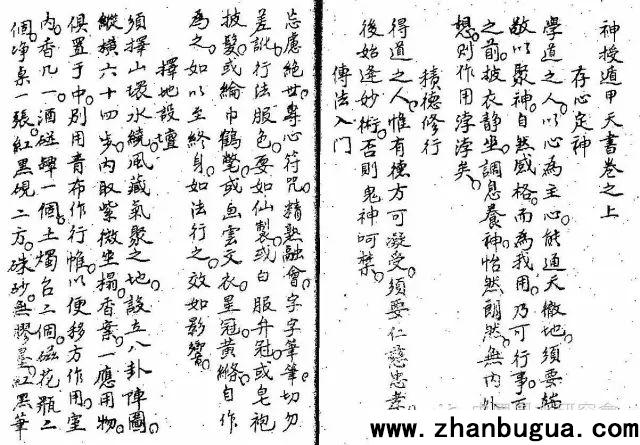 神授遁甲天書卷之上
存心定神
學道之人以心為主心能通天徹地須要端
敬以聚神自然感格而為我用乃可行事
之前披衣靜坐調息養神怡然朗然無內外
想則作用淳淳矣
積德修行
得道之人惟有德方可凝受須要仁慈忠孝
後始逢妙術否則鬼神呵禁
傳法入門
忘慮絕世專心符咒精熟融會字字筆筆切勿
差訛行法服色要如仙製或白服弁冠或皂袍
披髮或綸巾鶴氅或血雲文衣星冠黃絛自作
為之如以至終身如法行之效如影響
擇地設壇
須擇山環水繞風藏氣聚之地設立八卦陣圖
縱橫六十四步內取紫微坐撮香案一應用物
俱置于中別用青布作行帷以便移方作用室
內香几一酒磁罈一個土燭台二個磁花瓶二
個淨桌一張紅黑硯二方硃砂無膠墨紅黑筆
www.zhanbugua.com